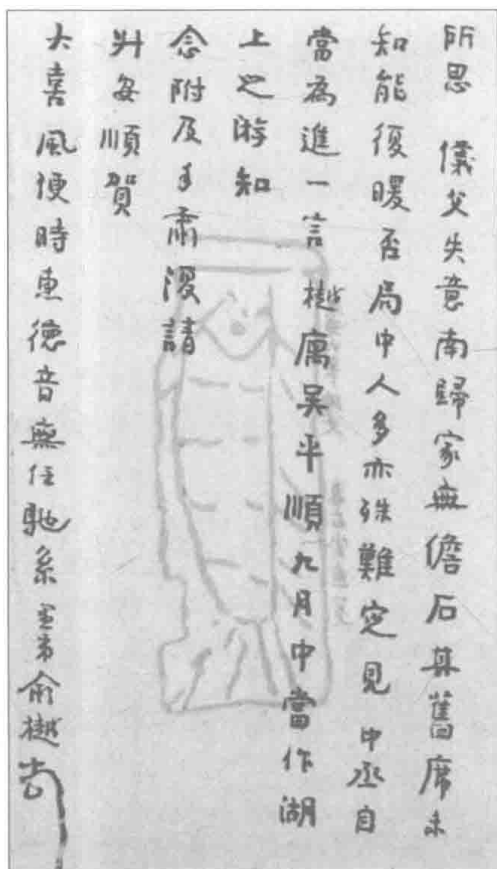 所思 儀父失意南歸家無儋石其舊席未
知能復暖否局中人多亦殊難定見 中丞自
當為進一言樾寓吳平順九月中當作湖
上之游知
念附及手肅復請
升安順賀
大喜風便時惠德音無任馳系 俞樾